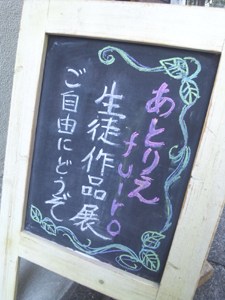 あとりえ
fuiro
生徒作品展
ご自由にどうぞ